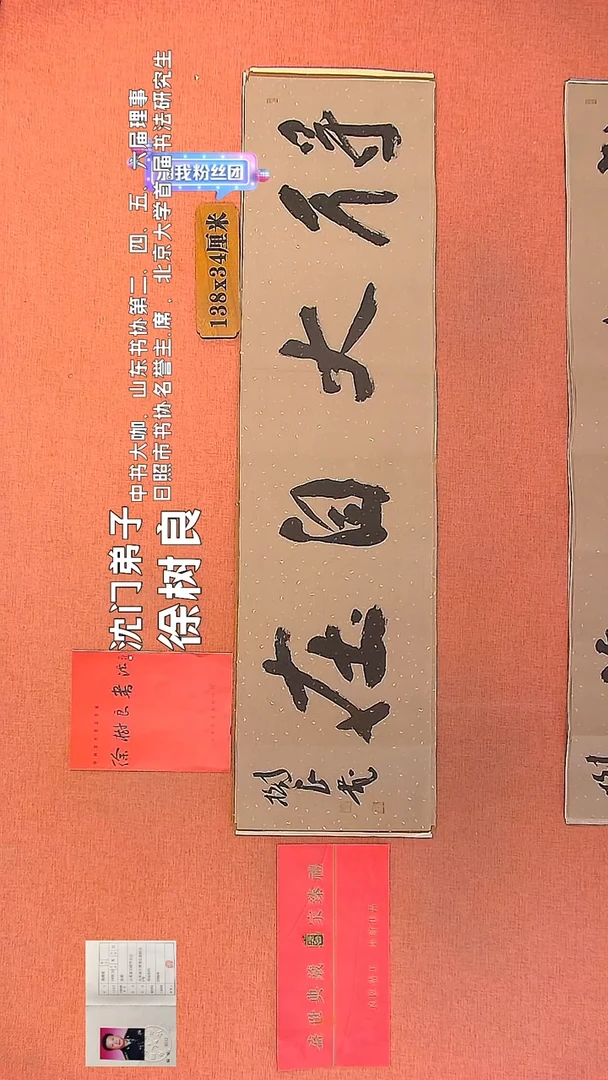 沈门弟子
徐树良
中书大咖、山东书协第二、四、五、六届理事
日照市书协名誉主席、北京大学首届书法研究生
我粉丝团
138x34厘米
得大自在
树良
徐树良书法
盛世典藏